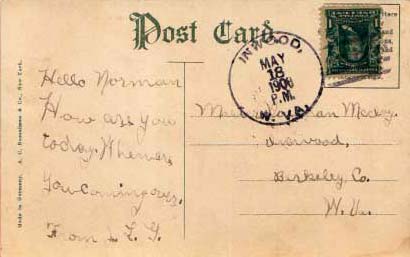 Post Card
INWOOD,
MAY
18
1908
P.M.
W. VA.
Hello Norman
How are you
today. When are
you coming over.
From L. G.
Inwood,
Berkeley Co.
W. Va.
Made in Germany. A. C. Bosselman & Co., New York.